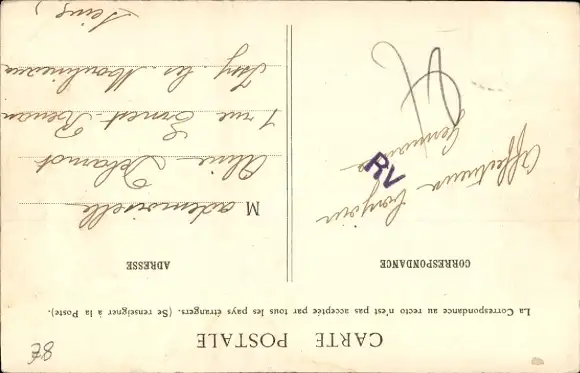 CARTE POSTALE
La Correspondance au recto n'est pas acceptée par tous les pays étrangers. (Se renseigner à la Poste).
CORRESPONDANCE
Affectueux bonjour
Germaine
RV
ADRESSE
Mademoiselle
Aline Delamot
1 rue Ernest-Renan
Issy les Moulineaux
Seine)
78